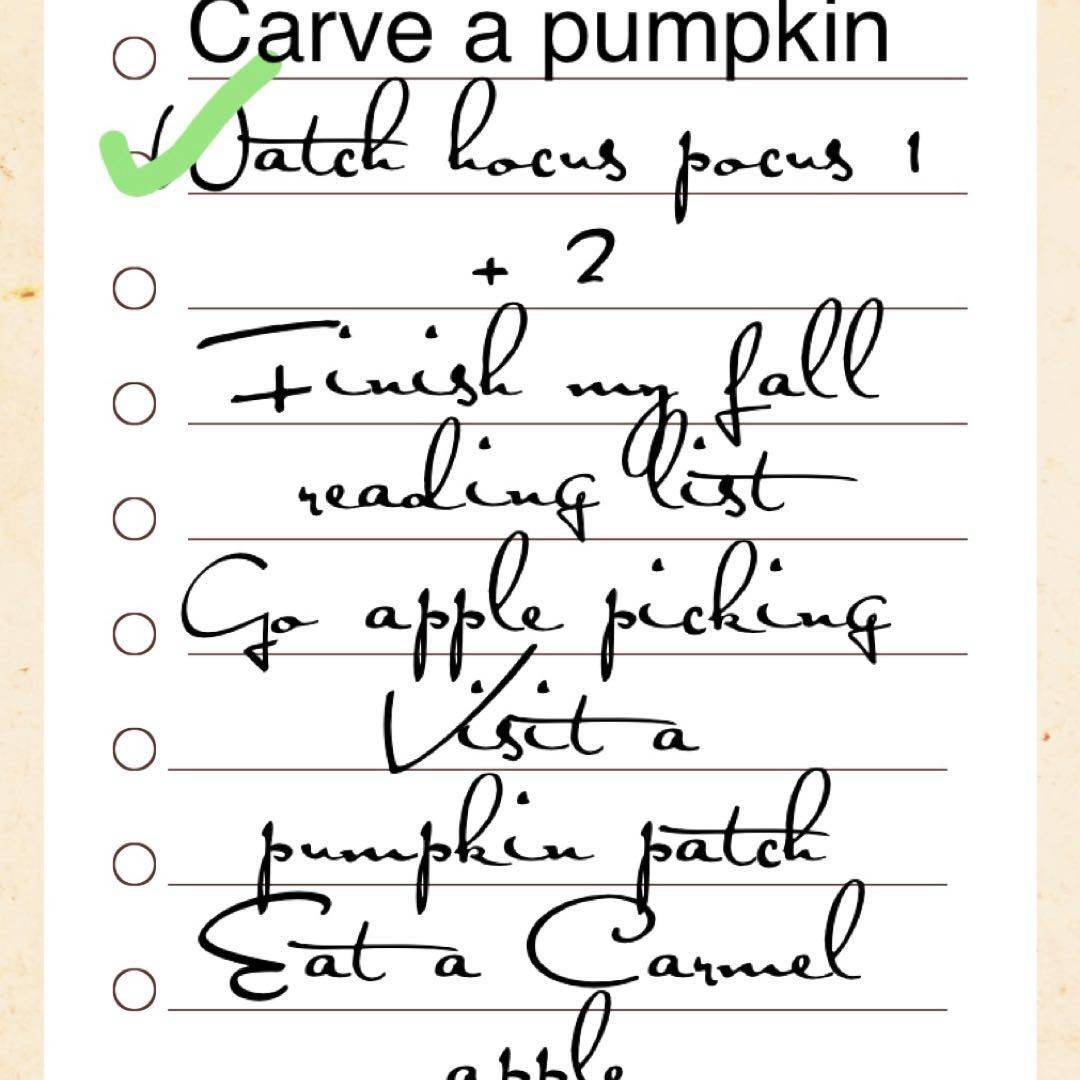 Carve a pumpkin
Watch hocus pocus 1
+ 2
Finish my fall
reading list
Go apple picking
Visit a
pumpkin patch
Eat a Carmel
apple